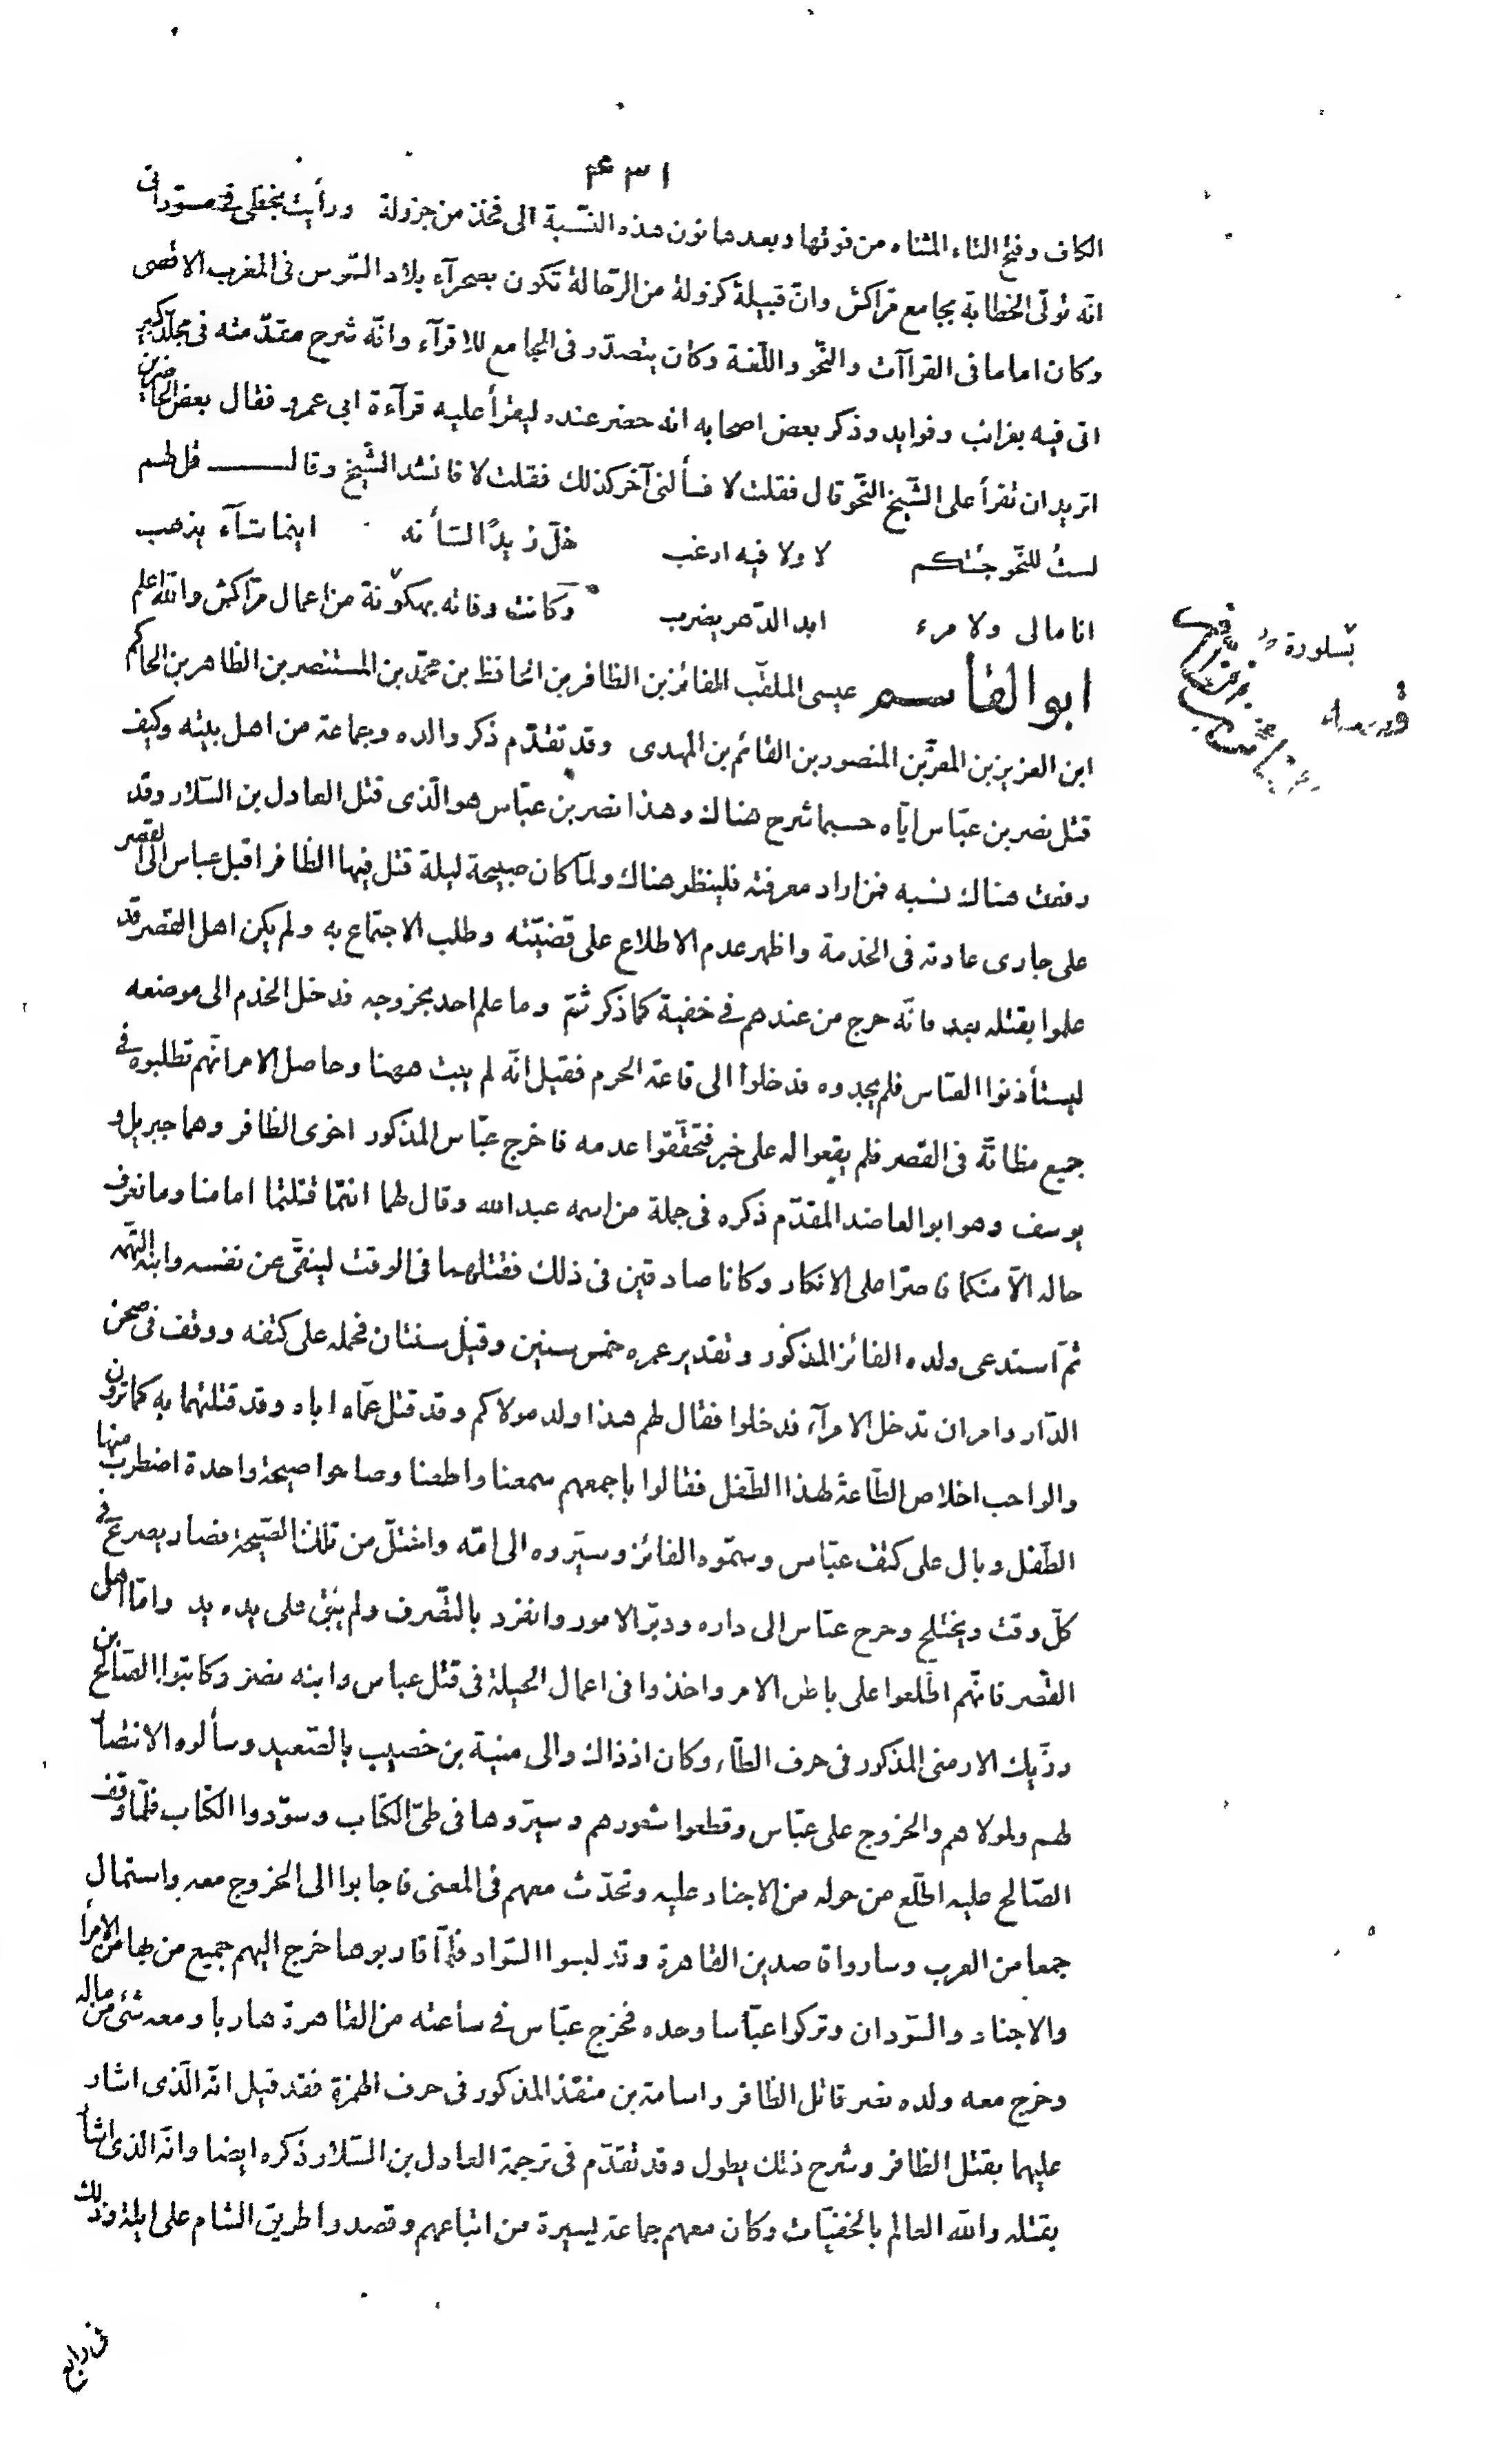 ٤٣١
الكاف وفتح التاء المثناه من فوتها وبعدها نون هذه النسّبة الى فخذ من جزولة ورأيت بخطى فى مسوّداتى
انه تولّى الخطابة بجامع مراكش وانّ قبيلة كزولة من الرّحالة تكون بصحرآء بلاد السّوس فى المغرب الاقصى
وكان اماما فى القراآت والنّحو واللّغة وكان يتصدّر فى الجامع للاقرآء وانّه شرح مقدّمته فى مجلّد كبير
اتى فيه بغرائب وفوايد وذكر بعض اصحابه انه حضر عنده ليقرأ عليه قرآءة ابى عمرو فقال بعض الحاضرين
اتريد ان تقرأ على الشّيخ النّحو قال فقلت لا فسألنى آخر كذلك فقلت لا فانشد الشّيخ وقال قل لهم
لستُ للنّحو جئتكم لا ولا فيه ارغب خلّ زيدًا لشأنه اينما شآء يذهب
انا مالى ولامرء ابد الدّهر يضرب وكانت وفاته بهكوّنة من اعمال مرّاكش والله اعلم
ابو القاسم عيسى الملقّب الفائز بن الظافر بن الحافظ بن محمّد بن المستنصر بن الظاهر بن الحاكم
ابن العزيز بن المعزّ بن المنصور بن القائم بن المهدى وقد تقدّم ذكر والده وجماعة من اهل بيته وكيف
قتل نصر بن عبّاس ايّاه حسبما شرح هناك وهذا نصر بن عبّاس هو الّذى قتل العادل بن السّلار وقد
رفعت هناك نسبه فمن اراد معرفته فلينظر هناك ولمّا كان صبيحة ليلة قتل فيها الظافر اقبل عباس الى القصر
على جارى عادته فى الخدمة واظهر عدم الاطلاع على قضيّته وطلب الاجتماع به ولم يكن اهل القصر قد
علموا بقتله بعد فانّه خرج من عندهم فى خفية كما ذكر ثمّ وما علم احد بخروجه فدخل الخدم الى موضعه
ليستأذنوا لعبّاس فلم يجدوه فدخلوا الى قاعة الحرم فقيل انّه لم يبت ههنا وحاصل الامر انّهم تطلبوه فى
جميع مظانّه فى القصر فلم يقعوا له على خبر فتحقّقوا عدمه فاخرج عبّاس المذكور اخوى الظافر وهما جبريل و
يوسف وهو ابو العاضد المقدّم ذكره فى جملة من اسمه عبد الله وقال لهما انتما قتلتما امامنا وما نعرف
حاله الّا منكما فاصرّا على الانكار وكانا صادقين فى ذلك فقتلهما فى الوقت لينفى عن نفسه وابنه التّهمة
ثمّ استدعى ولده الفائز المذكور وتقدير عمره خمس سنين وقيل سنتان فحمله على كتفه ووقف فى صحن
الدّار وامر ان تدخل الامرآء فدخلوا فقال لهم هذا ولد مولاكم وقد قتل عمّاه اباه وقد قتلتهما به كما ترون
والواجب اخلاص الطّاعة لهذا الطّفل فقالوا باجمعهم سمعنا واطعنا وصاحوا صيحة واحدة اضطرب منها
الطّفل وبال على كتف عبّاس وسمّوه الفائز وسيّروه الى امّه واختلّ من تلك الصّيحة فصار يصرع فى
كلّ وقت ويختلج وخرج عبّاس الى داره ودبّر الامور وانفرد بالتّصرف ولم يبق على يده يد وامّا اهل
القصر فانّهم اطّلعوا على باطن الامر واخذوا فى اعمال الحيلة فى قتل عباس وابنه نصر وكاتبوا الصّالح بن
رزّيك الارمنى المذكور فى حرف الطّاء وكان اذ ذاك والى منية بن خصيب بالصّعيد وسألوه الانتصار
لهم ولمولاهم والخروج على عبّاس وقطعوا شعورهم وسيّروها فى طىّ الكتاب وسوّدوا الكتاب فلمّا وقف
الصّالح عليه اطّلع من حوله من الاجناد عليه وتحدّث معهم فى المعنى فاجابوا الى الخروج معه واستمال
جمعا من العرب وساروا قاصدين القاهرة وقد لبسوا السّواد فلمّا قاربوها خرج اليهم جميع من بها من الامرآ
والاجناد والسّودان وتركوا عبّاسا وحده فخرج عبّاس فى ساعته من القاهرة هاربا ومعه شئ من ماله
وخرج معه ولده نصر قاتل الظافر واسامة بن منقذ المذكور فى حرف الهمزة فقد قيل انّه الّذى اشار
عليهما بقتل الظافر وشرح ذلك يطول وقد تقدّم فى ترجمة العادل بن السّلار ذكره ايضا وانّه الذى اشار
بقتله والله العالم بالخفيّات وكان معهم جماعة يسيرة من اتباعهم وقصدوا طريق الشام على ايلة وذلك
فى رابع